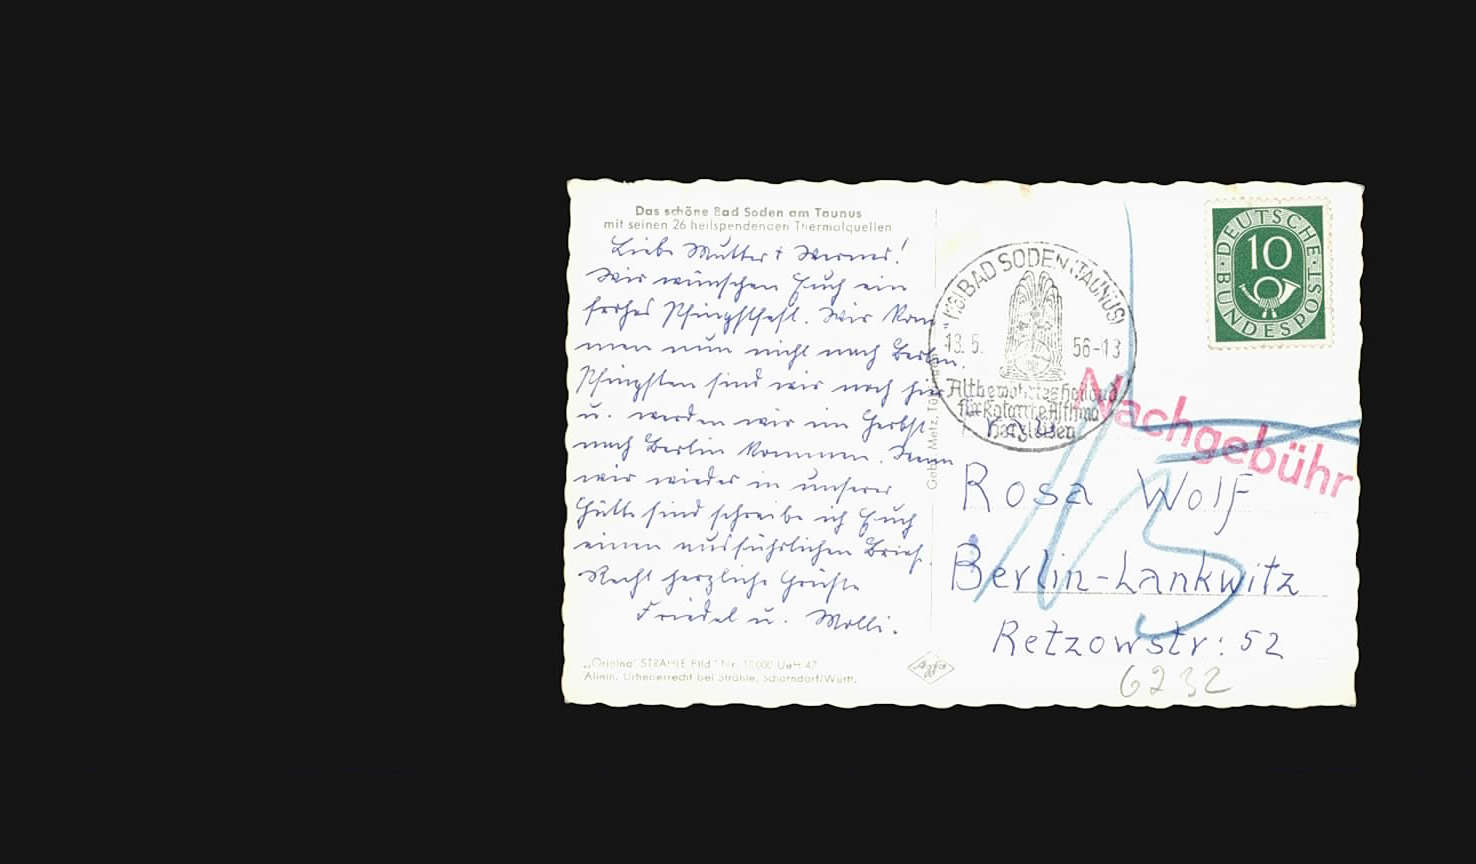 Das schöne Bad Soden am Taunus
mit seinen 26 heilspendenden Thermalquellen
Liebe Mutter + Werner!
Wir wünschen Euch ein
frohes Pfingstfest. Wir kom-
men nun nicht nach Berlin.
Pfingsten sind wir noch hier
u. werden wir im Herbst
nach Berlin kommen. Wenn
wir wieder in unserer
Hütte sind schreibe ich Euch
einen ausführlichen Brief.
Recht herzliche Grüße
Friedel u. Molli.
"Original" STRÄHLE Bild
Allein. Urheberrecht bei Strähle, Schorndorf/Württ.
Gebr. Metz,
Agfa
(16) BAD SODEN (TAUNUS)
13.5. 56-13
Altbewährtes Heilbad
für Katarrhe Asthma
Herzleiden
DEUTSCHE BUNDESPOST
10
Nachgebühr
15
Rosa Wolf
Berlin-Lankwitz
Retzowstr: 52
6232